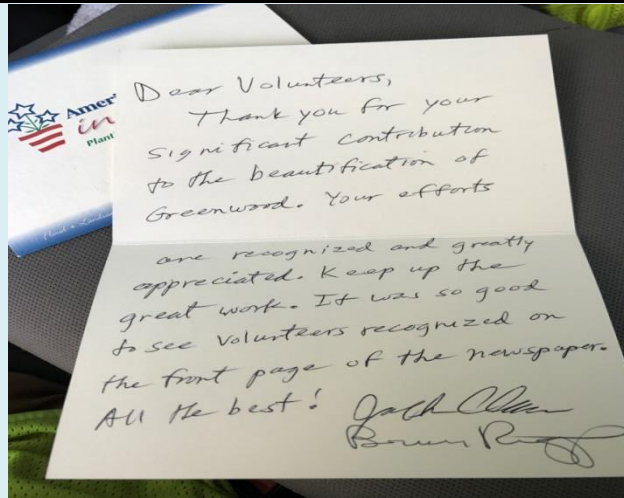 Amer
in
Plant
Dear Volunteers,
Thank you for your
significant contribution
to the beautification of
Greenwood. Your efforts
are recognized and greatly
appreciated. Keep up the
great work. It was so good
to see Volunteers recognized on
the front page of the newspaper.
All the best!